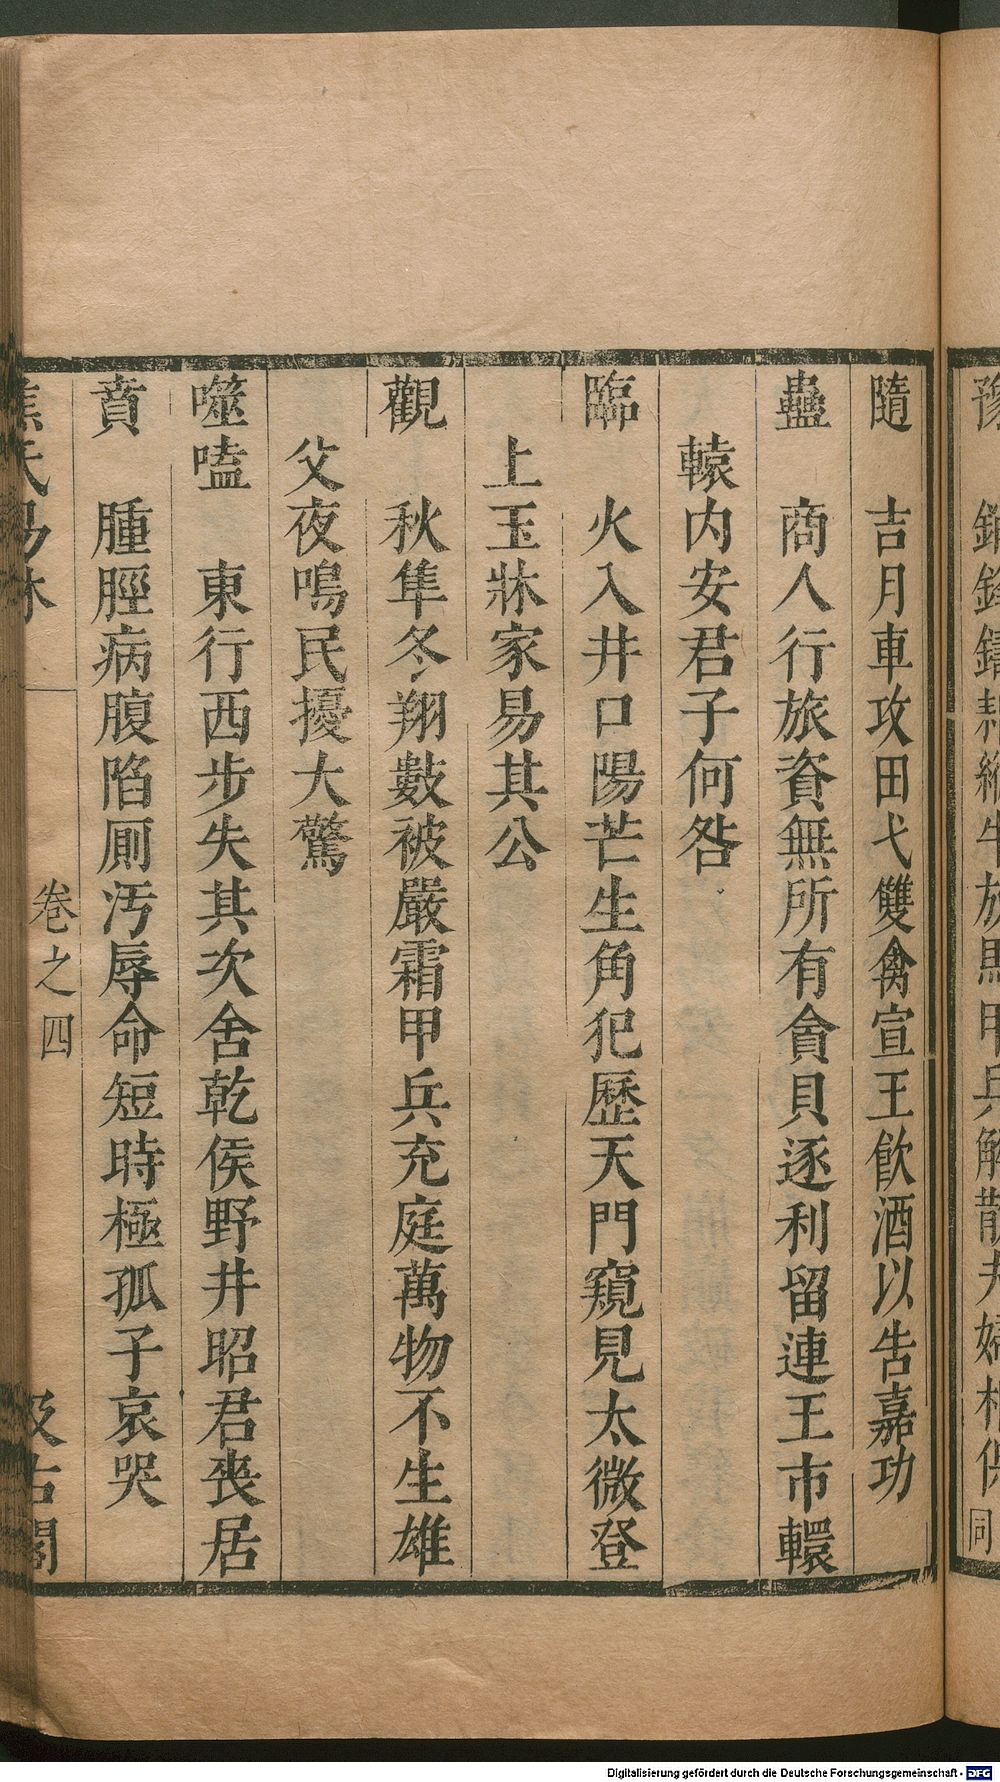 隨　吉月車攻田弋雙禽宣王飲酒以告嘉功
蠱　商人行旅資無所有貪貝逐利留連王市轘
轅内安君子何咎
臨　火入井口陽芒生角犯歷天門窺見太微登
上玉牀家易其公
觀　秋隼冬翔數被嚴霜甲兵充庭萬物不生雄
父夜鳴民擾大驚
噬嗑　東行西步失其次舍乾侯野井昭君喪居
賁　腫脛病腹陷厠汚辱命短時極孤子哀哭
卷之四
Digitalisierung gefördert durch die Deutsche Forschungsgemeinschaft - DFG